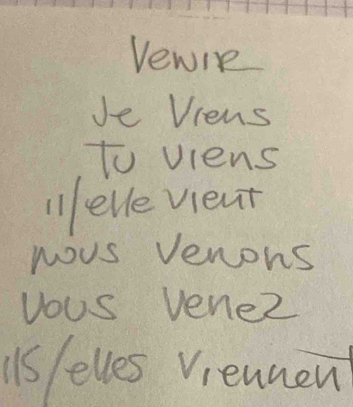 Venir
Je Viens
Tu viens
il/elle vient
nous venons
Vous venez
ils/elles viennent